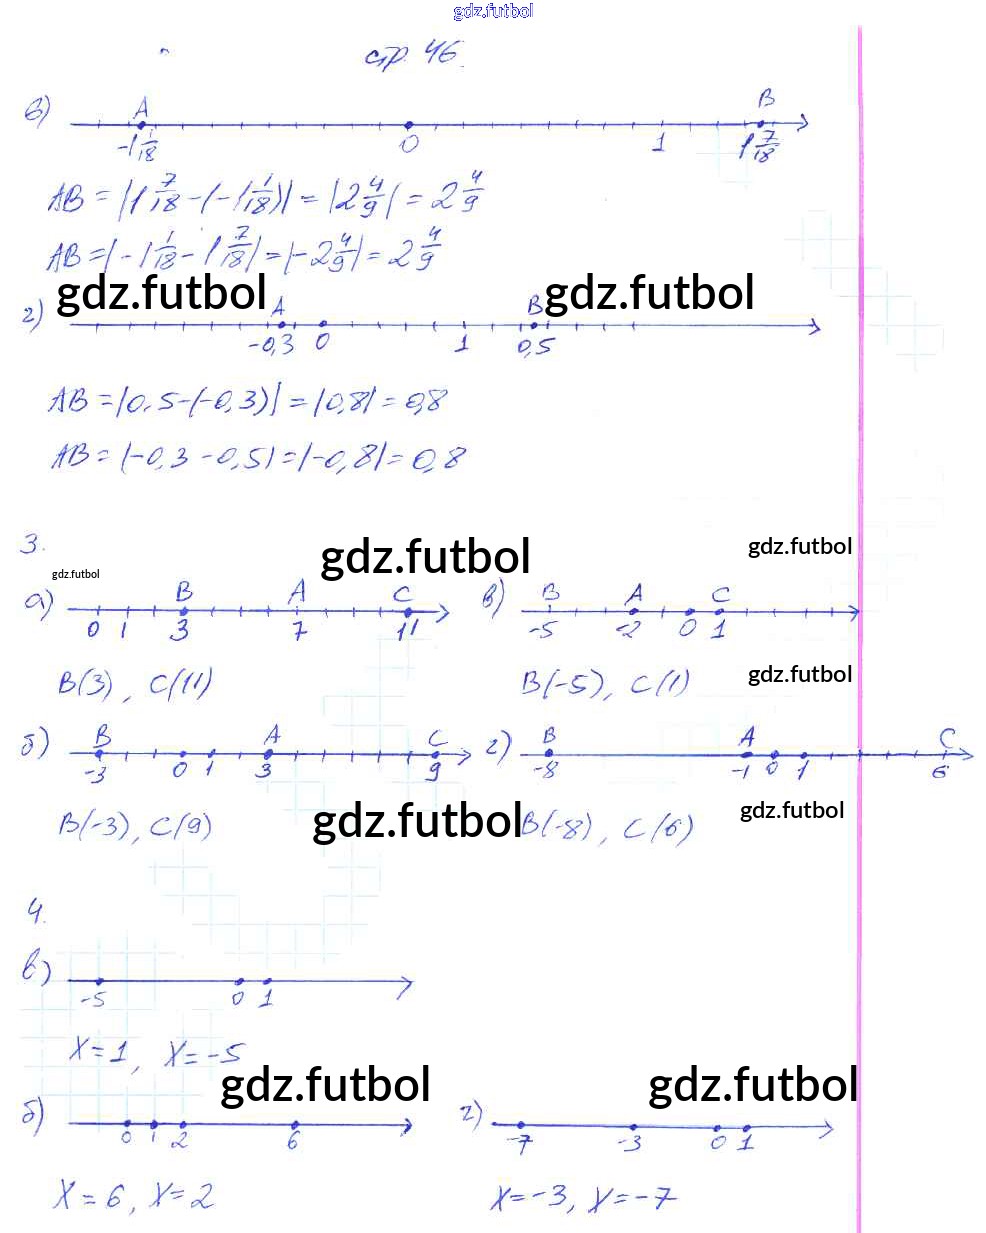 gdz.futbol
стр. 46.
в)
A B
-1 1/18 0 1 1 7/18
AB = |1 7/18 - (-1 1/18)| = |2 4/9| = 2 4/9
AB = |-1 1/18 - 1 7/18| = |-2 4/9| = 2 4/9
gdz.futbol gdz.futbol
г)
A B
-0,3 0 1 0,5
AB = |0,5-(-0,3)| = |0,8| = 0,8
AB = |-0,3 -0,5| = |-0,8| = 0,8
3.
gdz.futbol gdz.futbol
gdz.futbol
а) B A C
0 1 3 7 11
B(3), C(11)
в) B A C
-5 -2 0 1
B(-5), C(1)
gdz.futbol
б) B A C
-3 0 1 3 9
B(-3), C(9)
г) B A C
-8 -1 0 1 6
B(-8), C(6)
gdz.futbol gdz.futbol
4.
в)
-5 0 1
X=1, X=-5
gdz.futbol gdz.futbol
б)
0 1 2 6
X=6, X=2
г)
-7 -3 0 1
X=-3, X=-7